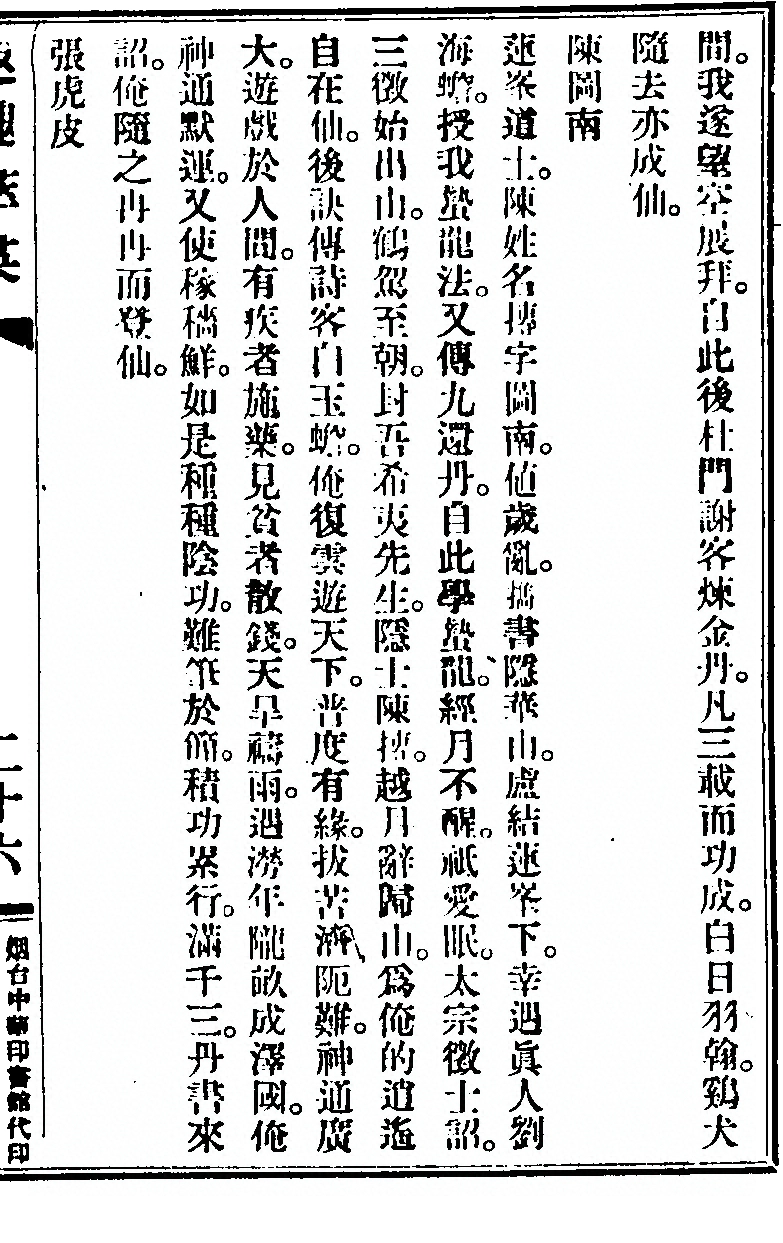 間。我遂望空展拜。自此後杜門謝客煉金丹。凡三載而功成。白日羽翰。鷄犬
隨去亦成仙。
陳圖南
蓮峯道士。陳姓名摶字圖南。値歲亂。攜書隱華山。廬結蓮峯下。幸遇眞人劉
海蟾。授我蟄龍法。又傳九還丹。自此學蟄龍。經月不醒。祇愛眠。太宗徵士詔。
三徵始出山。鶴駕至朝。封吾希夷先生。隱士陳摶。越月辭歸山。爲俺的逍遙
自在仙。後訣傳詩客白玉蟾。俺復雲遊天下。普度有緣。拔苦濟阨難。神通廣
大。遊戲於人間。有疾者施藥。見貧者散錢。天旱禱雨。遇澇年隴畝成澤國。俺
神通默運。又使稼穡鮮。如是種種陰功。難筆於簡。積功累行。滿千三。丹書來
詔。俺隨之冉冉而登仙。
張虎皮
二十六
烟台中華印書館代印